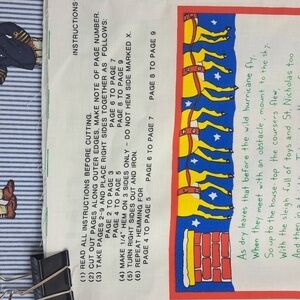 INSTRUCTIONS
(1) READ ALL INSTRUCTIONS BEFORE CUTTING.
(2) CUT OUT PAGES ALONG OUTER EDGES, MAKE NOTE OF PAGE NUMBER.
(3) TAKE PAGES 2-9 AND PLACE RIGHT SIDES TOGETHER AS FOLLOWS:
PAGE 2 TO PAGE 3 PAGE 6 TO PAGE 7
PAGE 4 TO PAGE 5 PAGE 8 TO PAGE 9
(4) MAKE 1/4" HEM ON 3 SIDES ONLY - DO NOT HEM SIDE MARKED X.
(5) TURN RIGHT SIDES OUT AND IRON
(6) REPEAT HEMMING FOR
PAGE 4 TO PAGE 5 PAGE 6 TO PAGE 7 PAGE 8 TO PAGE 9
As dry leaves that before the wild hurricane fly,
When they meet with an obstacle, mount to the sky;
So up to the house-top the coursers flew,
With the sleigh full of toys and St Nicholas too
And then in a